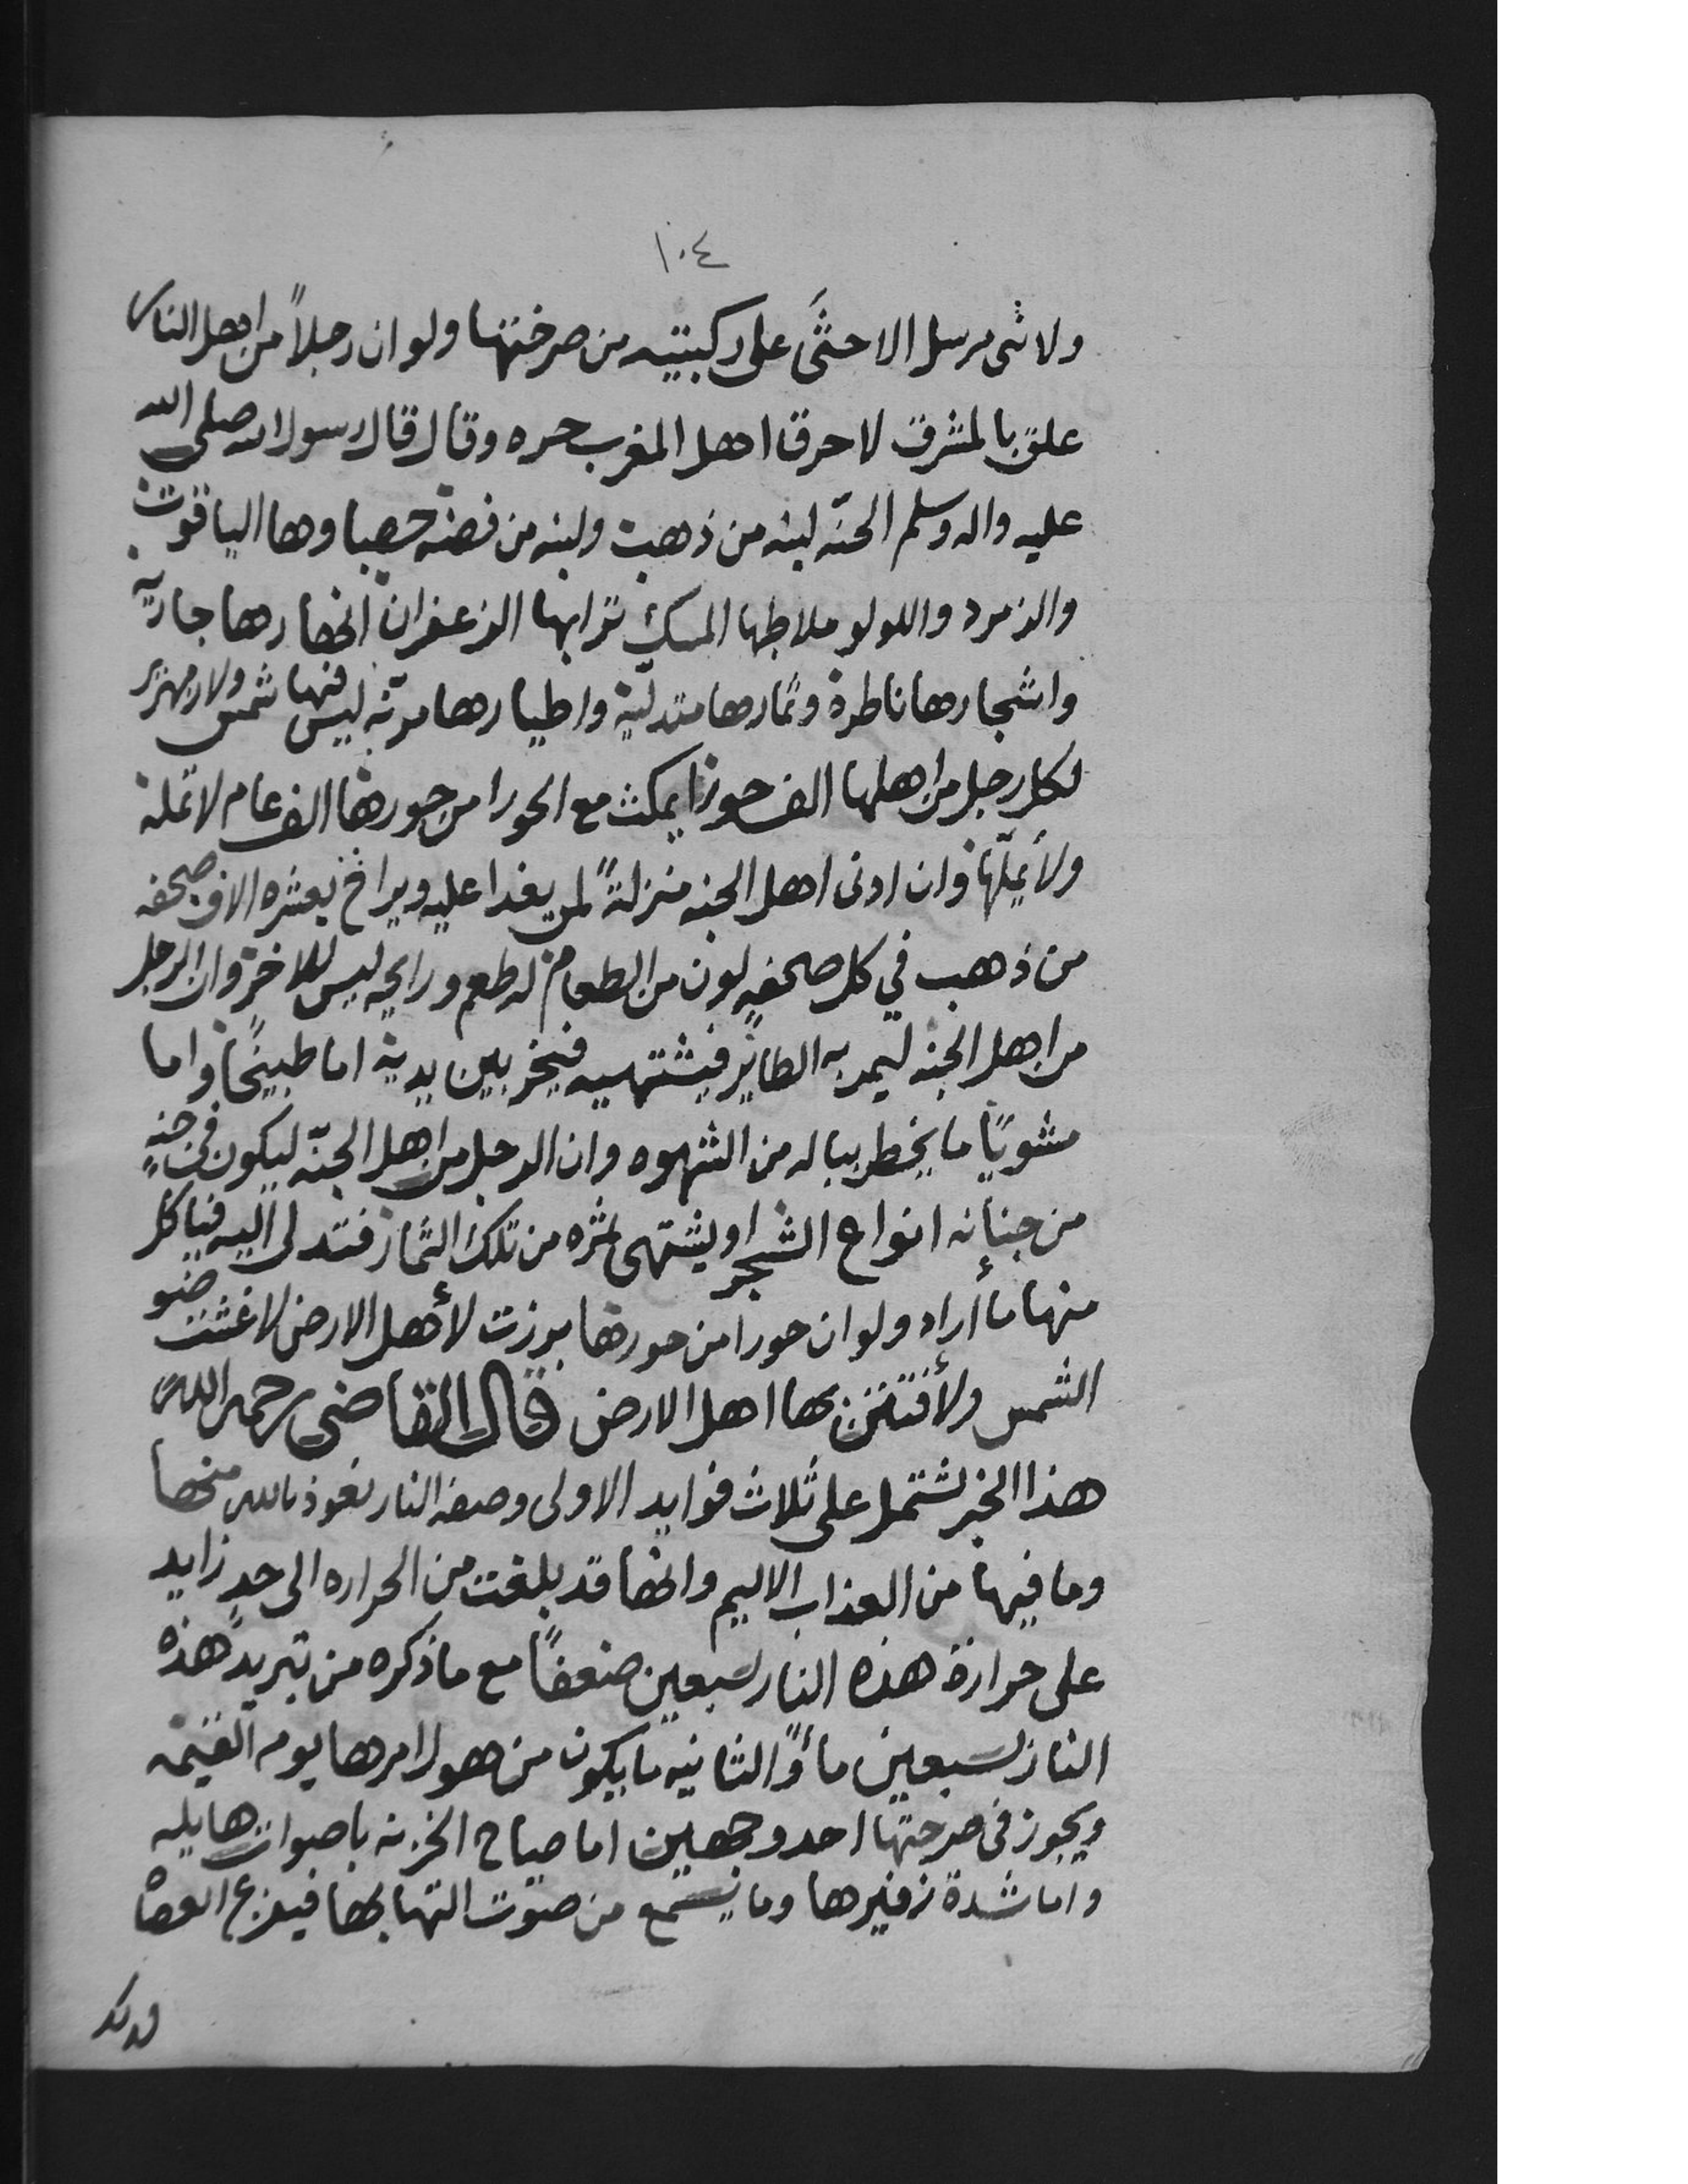 ١٠٤
ولا نبى مرسل الا جثَى على ركبتيه من صرختها ولو ان رجلاً من اهل النار
علق بالمشرق لاحرق اهل المغرب حره وقال قال رسول الله صلى الله
عليه واله وسلم الجنّه لبنه من ذهب ولبنه من فضه حصباوها الياقوت
والزمرد واللولو ملاطها المسك ترابها الزعفران انهارها جاريّه
واشجارها ناظرة وثمارها متدليّة واطيارها مرنّه ليس فيها شمس ولا زمهرير
لكل رجل من اهلها الف حورا يمكث مع الحورا من حورها الف عام لا تمله
ولا يملّها وان ادنى اهل الجنه منزلةً لمن يغدا عليه ويراح بعشره الاف صحفه
من ذهب في كل صحفهٍ لون من الطعام له طعم ورايحه ليس للاخر وان الرجل
من اهل الجنه ليمر به الطاير فيشتهيه فيخر بين يديه اما طبيخاً واما
مشويًا ما يخطر بباله من الشهوه وان الرجل من اهل الجنّه ليكون فى جنهٍ
من جنانه انواع الشجر او يشتهى ثمره من تلك الثمار فتدلى اليه فياكل
منها ما أراد ولو ان حورا من حورها برزت لأهل الارض لاغشت ضو
الشمس ولأفتتن بها اهل الارض قال القاضى رحمه الله
هذا الخبر يشتمل على ثلاث فوايد الاولى وصفه النار نعوذ بالله منها
وما فيها من العذاب الاليم وانها قد بلغت من الحراره الى حدٍ زايد
على حرارة هذه النار سبعين ضعفاً مع ما ذكره من تبريد هذه
النار سبعين مأوً الثانيه ما يكون من هول امرها يوم القيمه
ويجوز فى صرختها احد وجهين اما صياح الخزنه باصوات هايله
واما شدة زفيرها وما يسمع من صوت التهابها فيفزع العصاه